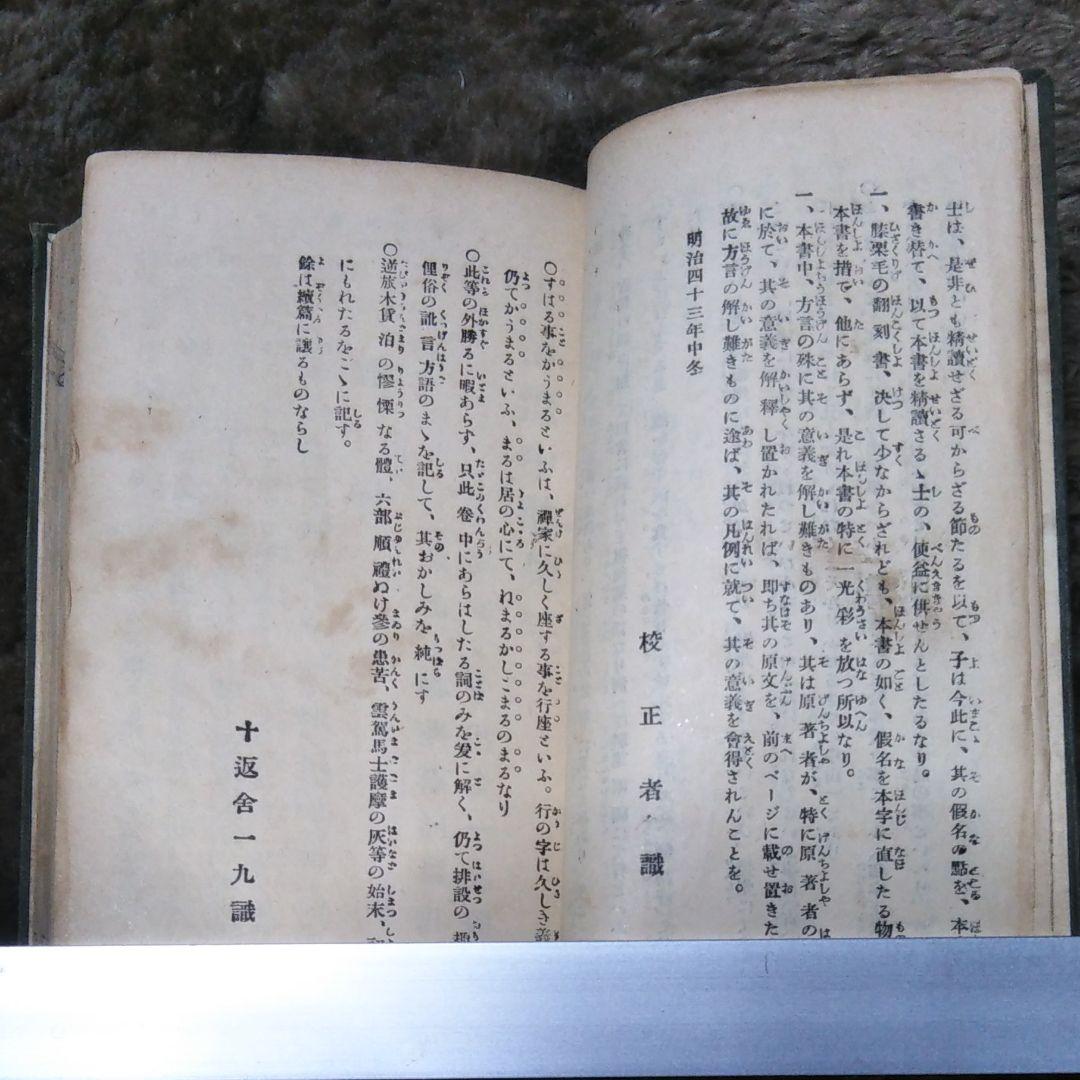 士は、是非とも精讀せざる可からざる節たるを以て、子は今此に、其の假名の點を、本
書き替て、以て本書を精讀さるゝ士の、便益に供せんとしたるなり。
一、膝栗毛の翻刻書、決して少なからざれども、本書の如く、假名を本字に直したる物
本書を措て、他にあらず、是れ本書の特に一光彩を放つ所以なり。
一、本書中、方言の殊に其の意義を解し難きものあり、其は原著者が、特に原著者の
に於て、其の意義を解釋し置かれたれば、即ち其の原文を、前のページに載せ置きた
故に方言の解し難きものに逢ば、其の凡例に就て、其の意義を會得されんことを。
明治四十三年中冬
校正者識
〇すはる事をかうまるといふは、禪家に久しく座する事を行座といふ。行の字は久しき義
仍てかうまるといふ、まるは居の心にて、ねまるかしこまるのまるなり
〇此等の外勝るに暇あらす、只此卷中にあらはしたる詞のみを爰に解く、仍て排設の趣
俚俗の訛言方語のまゝを記して、其おかしみを純にす
〇逆旅木賃泊の憀慄なる體、六部順禮ぬけ參の患苦、雲駕馬士護摩の灰等の始末、
にもれたるをこゝに記す。
餘は續篇に讓るものならし
十返舍一九識